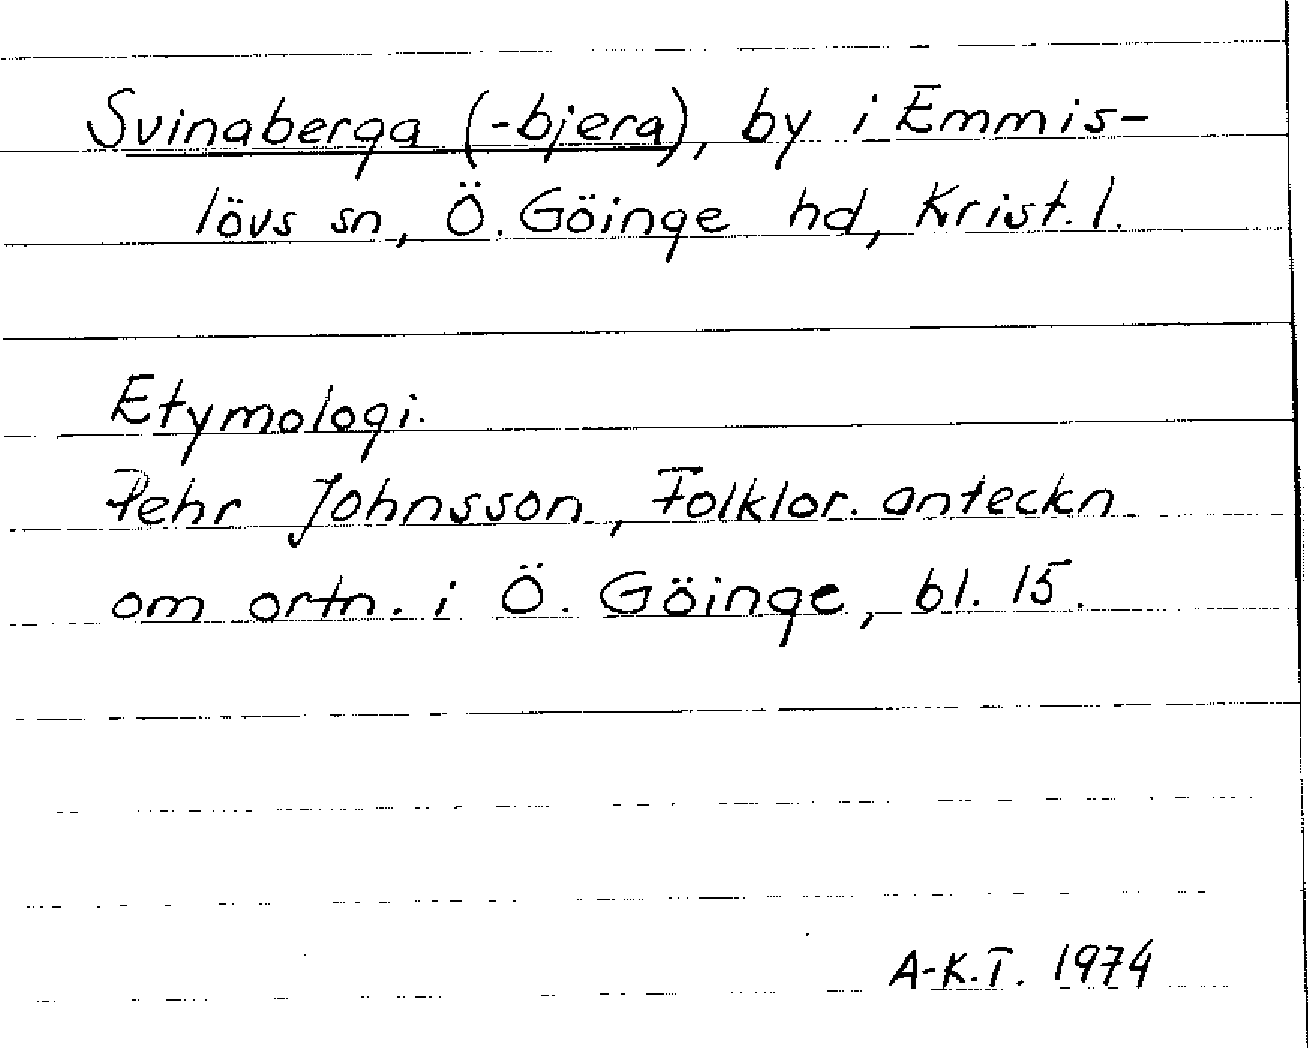 Svinaberga (-bjera), by i Emmis-
lövs sn, Ö. Göinge hd, Krist. l.
Etymologi.
Pehr Johnsson, Folklor. anteckn
om ortn. i Ö. Göinge, bl. 15.
A-K.T. 1974